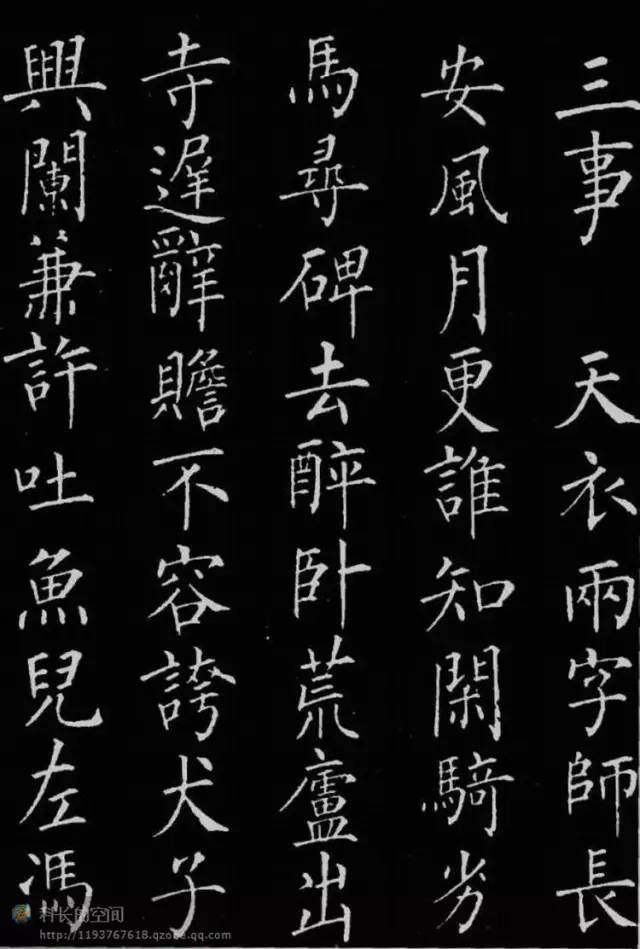 三事　天衣兩字師長
安風月更誰知閑騎劣
馬尋碑去醉卧荒廬出
寺遲辭贍不容誇犬子
興闌兼許吐魚兒左馮
科长的空间
http://1193767618.qzone.qq.com